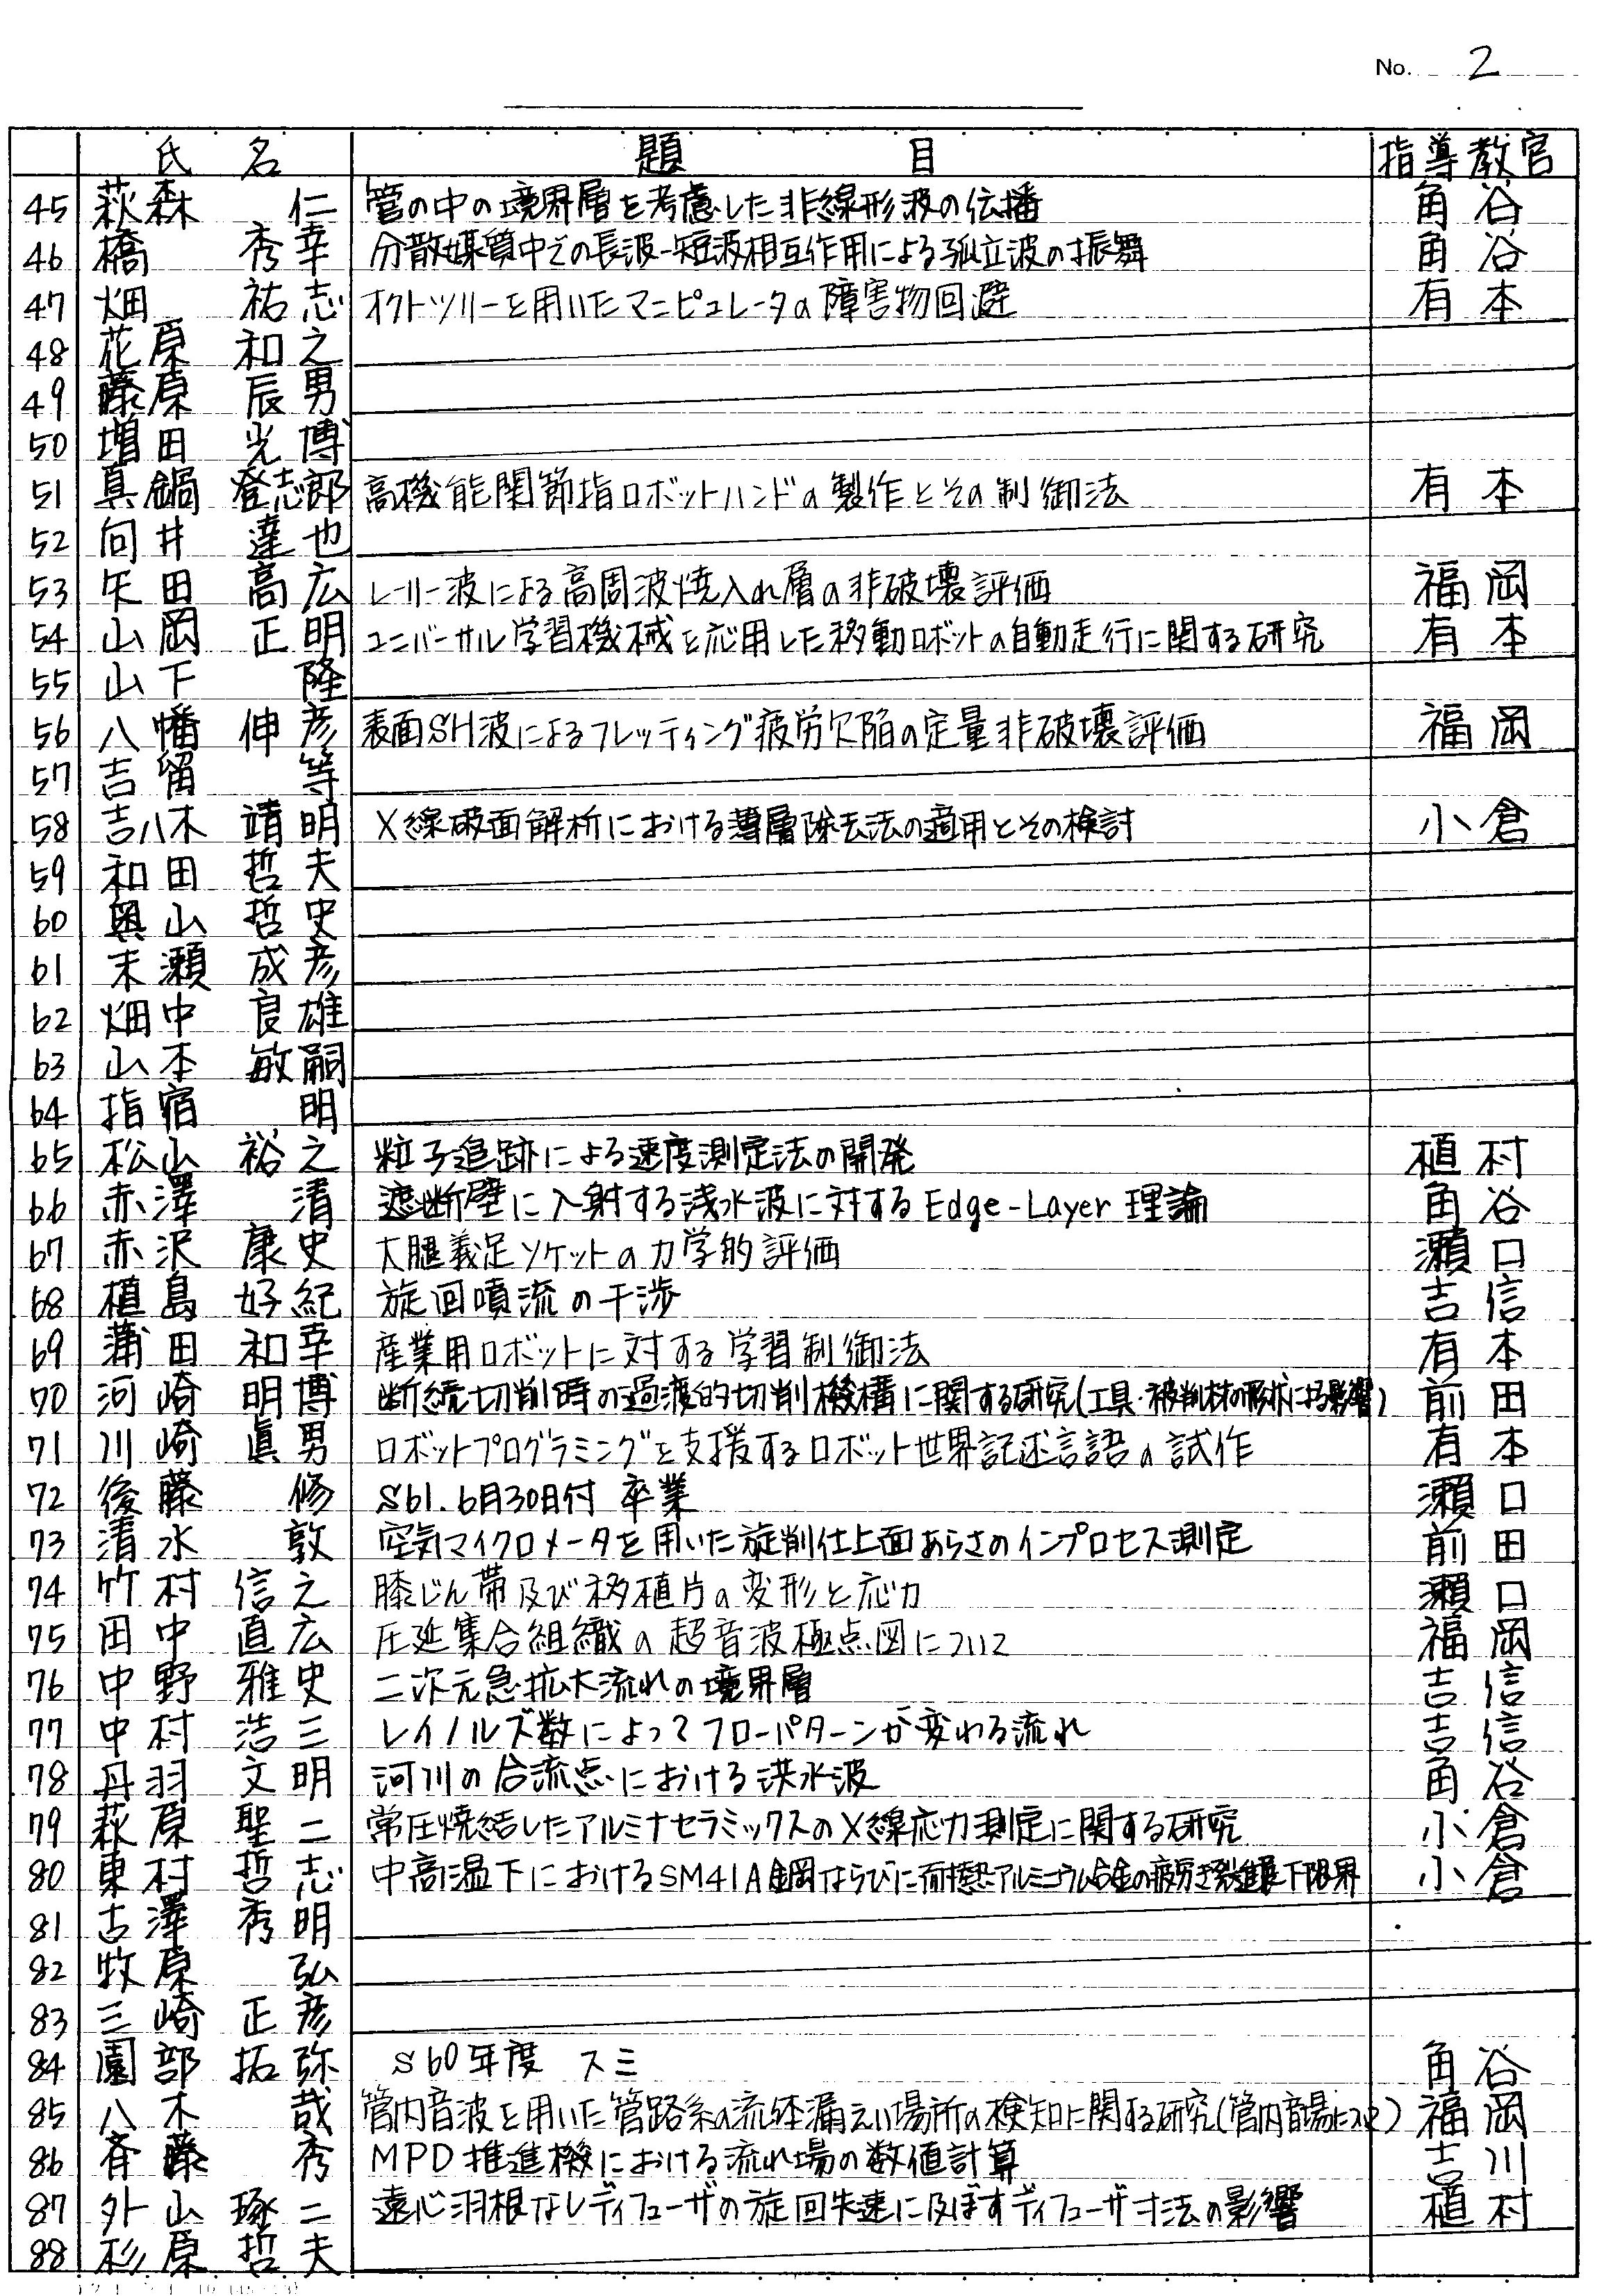 No. 2
氏名 題目 指導教官
45 萩森 仁 管の中の境界層を考慮した非線形波の伝播 角谷
46 橋 秀幸 分散媒質中での長波-短波相互作用による孤立波の振舞 角谷
47 畑 祐志 オクトツリーを用いたマニピュレータの障害物回避 有本
48 花原 和之
49 藤原 辰男
50 増田 光博
51 真鍋 登志郎 高機能関節指ロボットハンドの製作とその制御法 有本
52 向井 達也
53 矢田 高広 レーリー波による高周波焼入れ層の非破壊評価 福岡
54 山岡 正明 ユニバーサル学習機械を応用した移動ロボットの自動走行に関する研究 有本
55 山下 隆
56 八幡 伸彦 表面SH波によるフレッティング疲労欠陥の定量非破壊評価 福岡
57 吉留 等
58 吉八木 靖明 X線破面解析における薄層除去法の適用とその検討 小倉
59 和田 哲夫
60 奥山 哲史
61 末瀬 成彦
62 畑中 良雄
63 山本 敏嗣
64 指宿 明
65 松山 裕之 粒子追跡による速度測定法の開発 植村
66 赤澤 清 遮断壁に入射する浅水波に対するEdge-Layer理論 角谷
67 赤沢 康史 大腿義足ソケットの力学的評価 瀬口
68 植島 好紀 旋回噴流の干渉 吉信
69 蒲田 和幸 産業用ロボットに対する学習制御法 有本
70 河崎 明博 断続切削時の過渡的切削機構に関する研究(工具・被削材の形状による影響) 前田
71 川崎 眞男 ロボットプログラミングを支援するロボット世界記述言語の試作 有本
72 後藤 修 S61.6月30日付 卒業 瀬口
73 清水 敦 空気マイクロメータを用いた旋削仕上面あらさのインプロセス測定 前田
74 竹村 信之 膝じん帯及び移植片の変形と応力 瀬口
75 田中 直広 圧延集合組織の超音波極点図について 福岡
76 中野 雅史 二次元急拡大流れの境界層 吉信
77 中村 浩三 レイノルズ数によってフローパターンが変わる流れ 吉信
78 丹羽 文明 河川の合流点における洪水波 角谷
79 萩原 聖二 常圧焼結したアルミナセラミックスのX線応力測定に関する研究 小倉
80 東村 哲志 中高温下におけるSM41A鋼ならびに耐熱アルミニウム合金の疲労き裂進展下限界 小倉
81 古澤 秀明
82 牧原 弘
83 三崎 正彦
84 園部 拓弥 S60年度 スミ 角谷
85 八木 哉 管内音波を用いた管路系の流体漏えい場所の検知に関する研究(管内音場について) 福岡
86 斉藤 秀 MPD推進機における流れ場の数値計算 吉川
87 外山 琢二 遠心羽根なしディフューザの旋回失速に及ぼすディフューザ寸法の影響 植村
88 杉原 哲夫